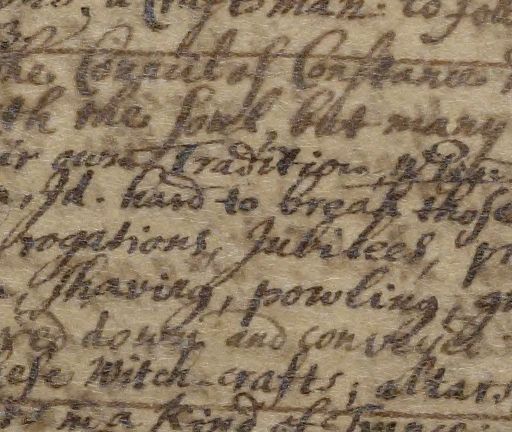 a Craftsman. to
the Councel of Constance
th the soul, but many
ir own Tradition,
Id. hard to break those
rogations, Jubilees, pr
shaving, powling, an
red down and convey'd
hese Witch-crafts; Altars
in a kind of